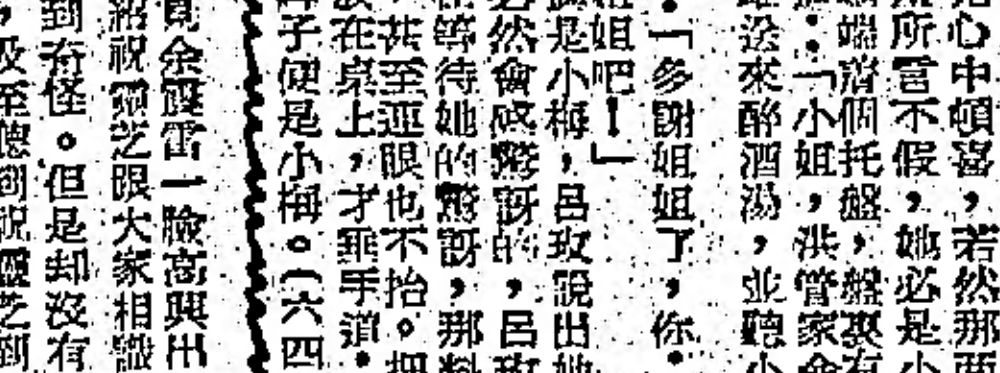 心中頓喜，若然那
所言不假，她必是小
端齊個托盤，盤裏有
：「小姐，洪管家命
送來醉酒湯，並聽小
：「多謝姐姐了，你：
姐吧！」
是小梅，呂玫說出她
然會感驚訝的，呂玫
等待她的驚訝，那料
，甚至連眼也不抬。把
在桌上，才垂手道：
子便是小梅。（六四
余醒雷一臉高興出
紹祝靈之跟大家相識
到奇怪。但是却沒有
，及至聽到祝靈之到